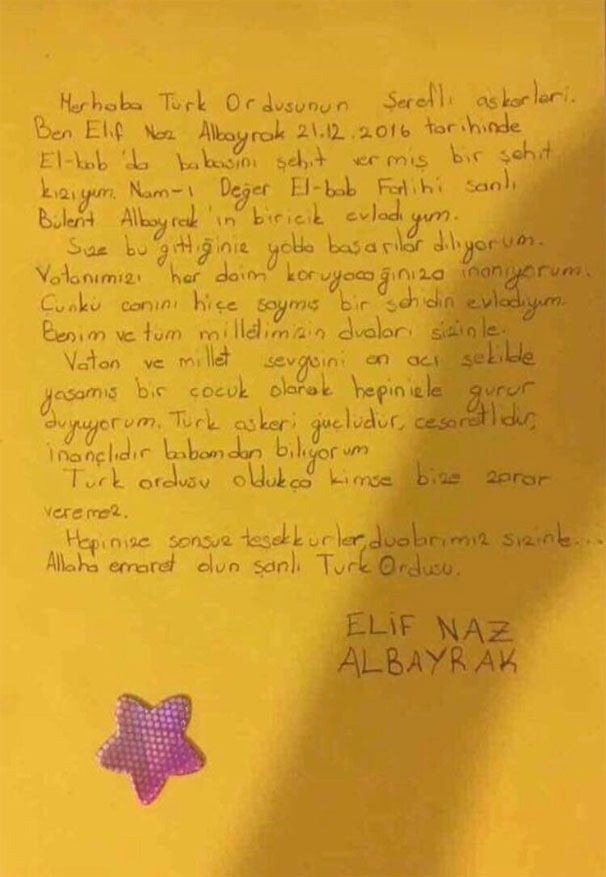 Merhaba Türk Ordusunun Şerefli askerleri.
Ben Elif Naz Albayrak 21.12.2016 tarihinde
El-bab'da babasını şehit vermiş bir şehit
kızıyım. Nam-ı Değer El-bab Fatihi şanlı
Bülent Albayrak'ın biricik evladıyım.
Size bu gittiğiniz yolda başarılar diliyorum.
Vatanımızı her daim koruyacağınıza inanıyorum.
Çünkü canını hiçe saymış bir şehidin evladıyım.
Benim ve tüm milletimizin duaları sizinle.
Vatan ve millet sevgisini en acı şekilde
yaşamış bir çocuk olarak hepinizle gurur
duyuyorum. Türk askeri güçlüdür, cesaretlidir,
inançlıdır babamdan biliyorum
Türk ordusu oldukça kimse bize zarar
veremez.
Hepinize sonsuz teşekkürler, dualarımız sizinle...
Allaha emanet olun şanlı Türk Ordusu.
ELİF NAZ
ALBAYRAK